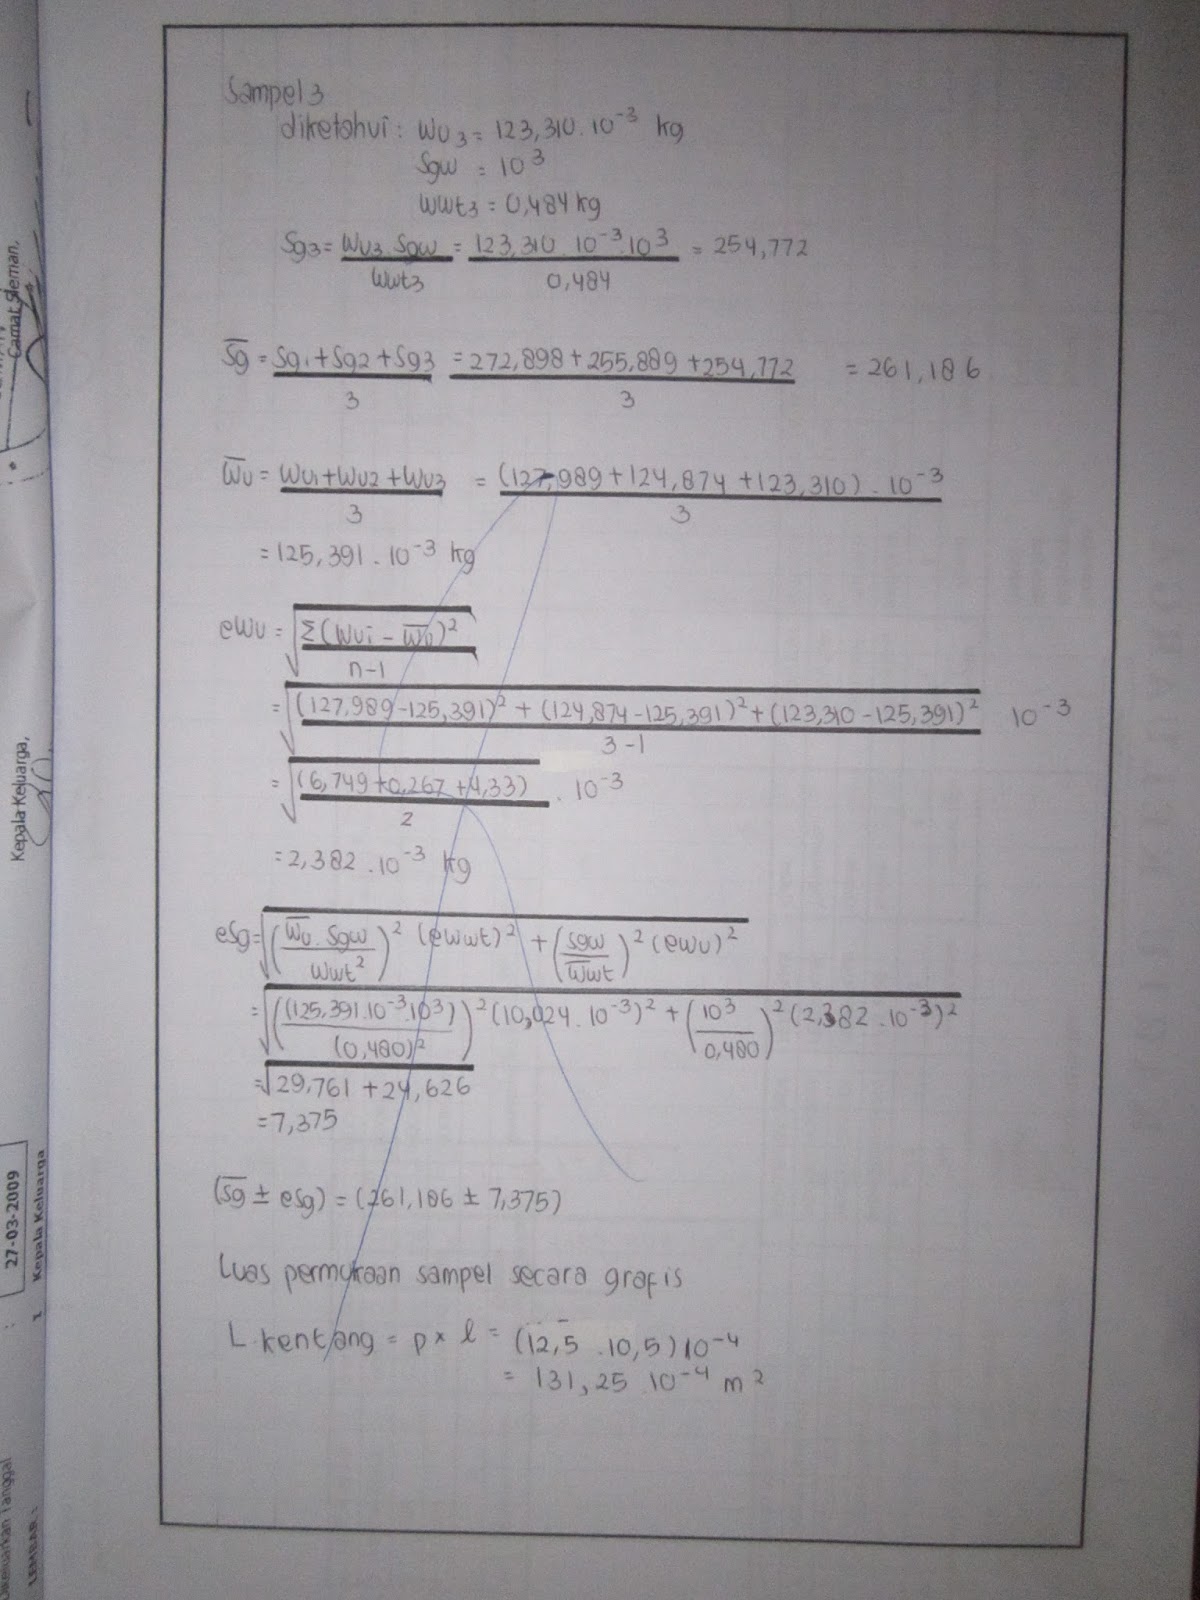 Sampel 3
diketahui : Wu3 = 123,310 . 10^-3 kg
Sgw = 10^3
Wwt3 = 0,484 kg
Sg3 = Wu3 . Sgw / Wwt3 = 123,310 . 10^-3 . 10^3 / 0,484 = 254,772
S̅g̅ = Sg1 + Sg2 + Sg3 / 3 = 272,898 + 255,889 + 254,772 / 3 = 261,186
W̅u = Wu1 + Wu2 + Wu3 / 3 = (127,989 + 124,874 + 123,310) . 10^-3 / 3
= 125,391 . 10^-3 kg
eWu = √(Σ(Wui - W̅u)^2 / n-1)
= √((127,989 - 125,391)^2 + (124,874 - 125,391)^2 + (123,310 - 125,391)^2 / 3-1) 10^-3
= √((6,749 + 0,267 + 4,33) / 2) . 10^-3
= 2,382 . 10^-3 kg
eSg = √((W̅u . Sgw / Wwt^2)^2 (eWwt)^2 + (Sgw / W̅wt)^2 (eWu)^2)
= √(((125,391 . 10^-3 . 10^3) / (0,480)^2)^2 (10,024 . 10^-3)^2 + (10^3 / 0,480)^2 (2,382 . 10^-3)^2)
= √29,761 + 24,626
= 7,375
(S̅g̅ ± eSg) = (261,186 ± 7,375)
Luas permukaan sampel secara grafis
L. kentang = p x l = (12,5 . 10,5) 10^-4
= 131,25 10^-4 m^2
Camat Sleman,
Kepala Keluarga,
27-03-2009
Kepala Keluarga
Dikeluarkan Tanggal :
LEMBAR :